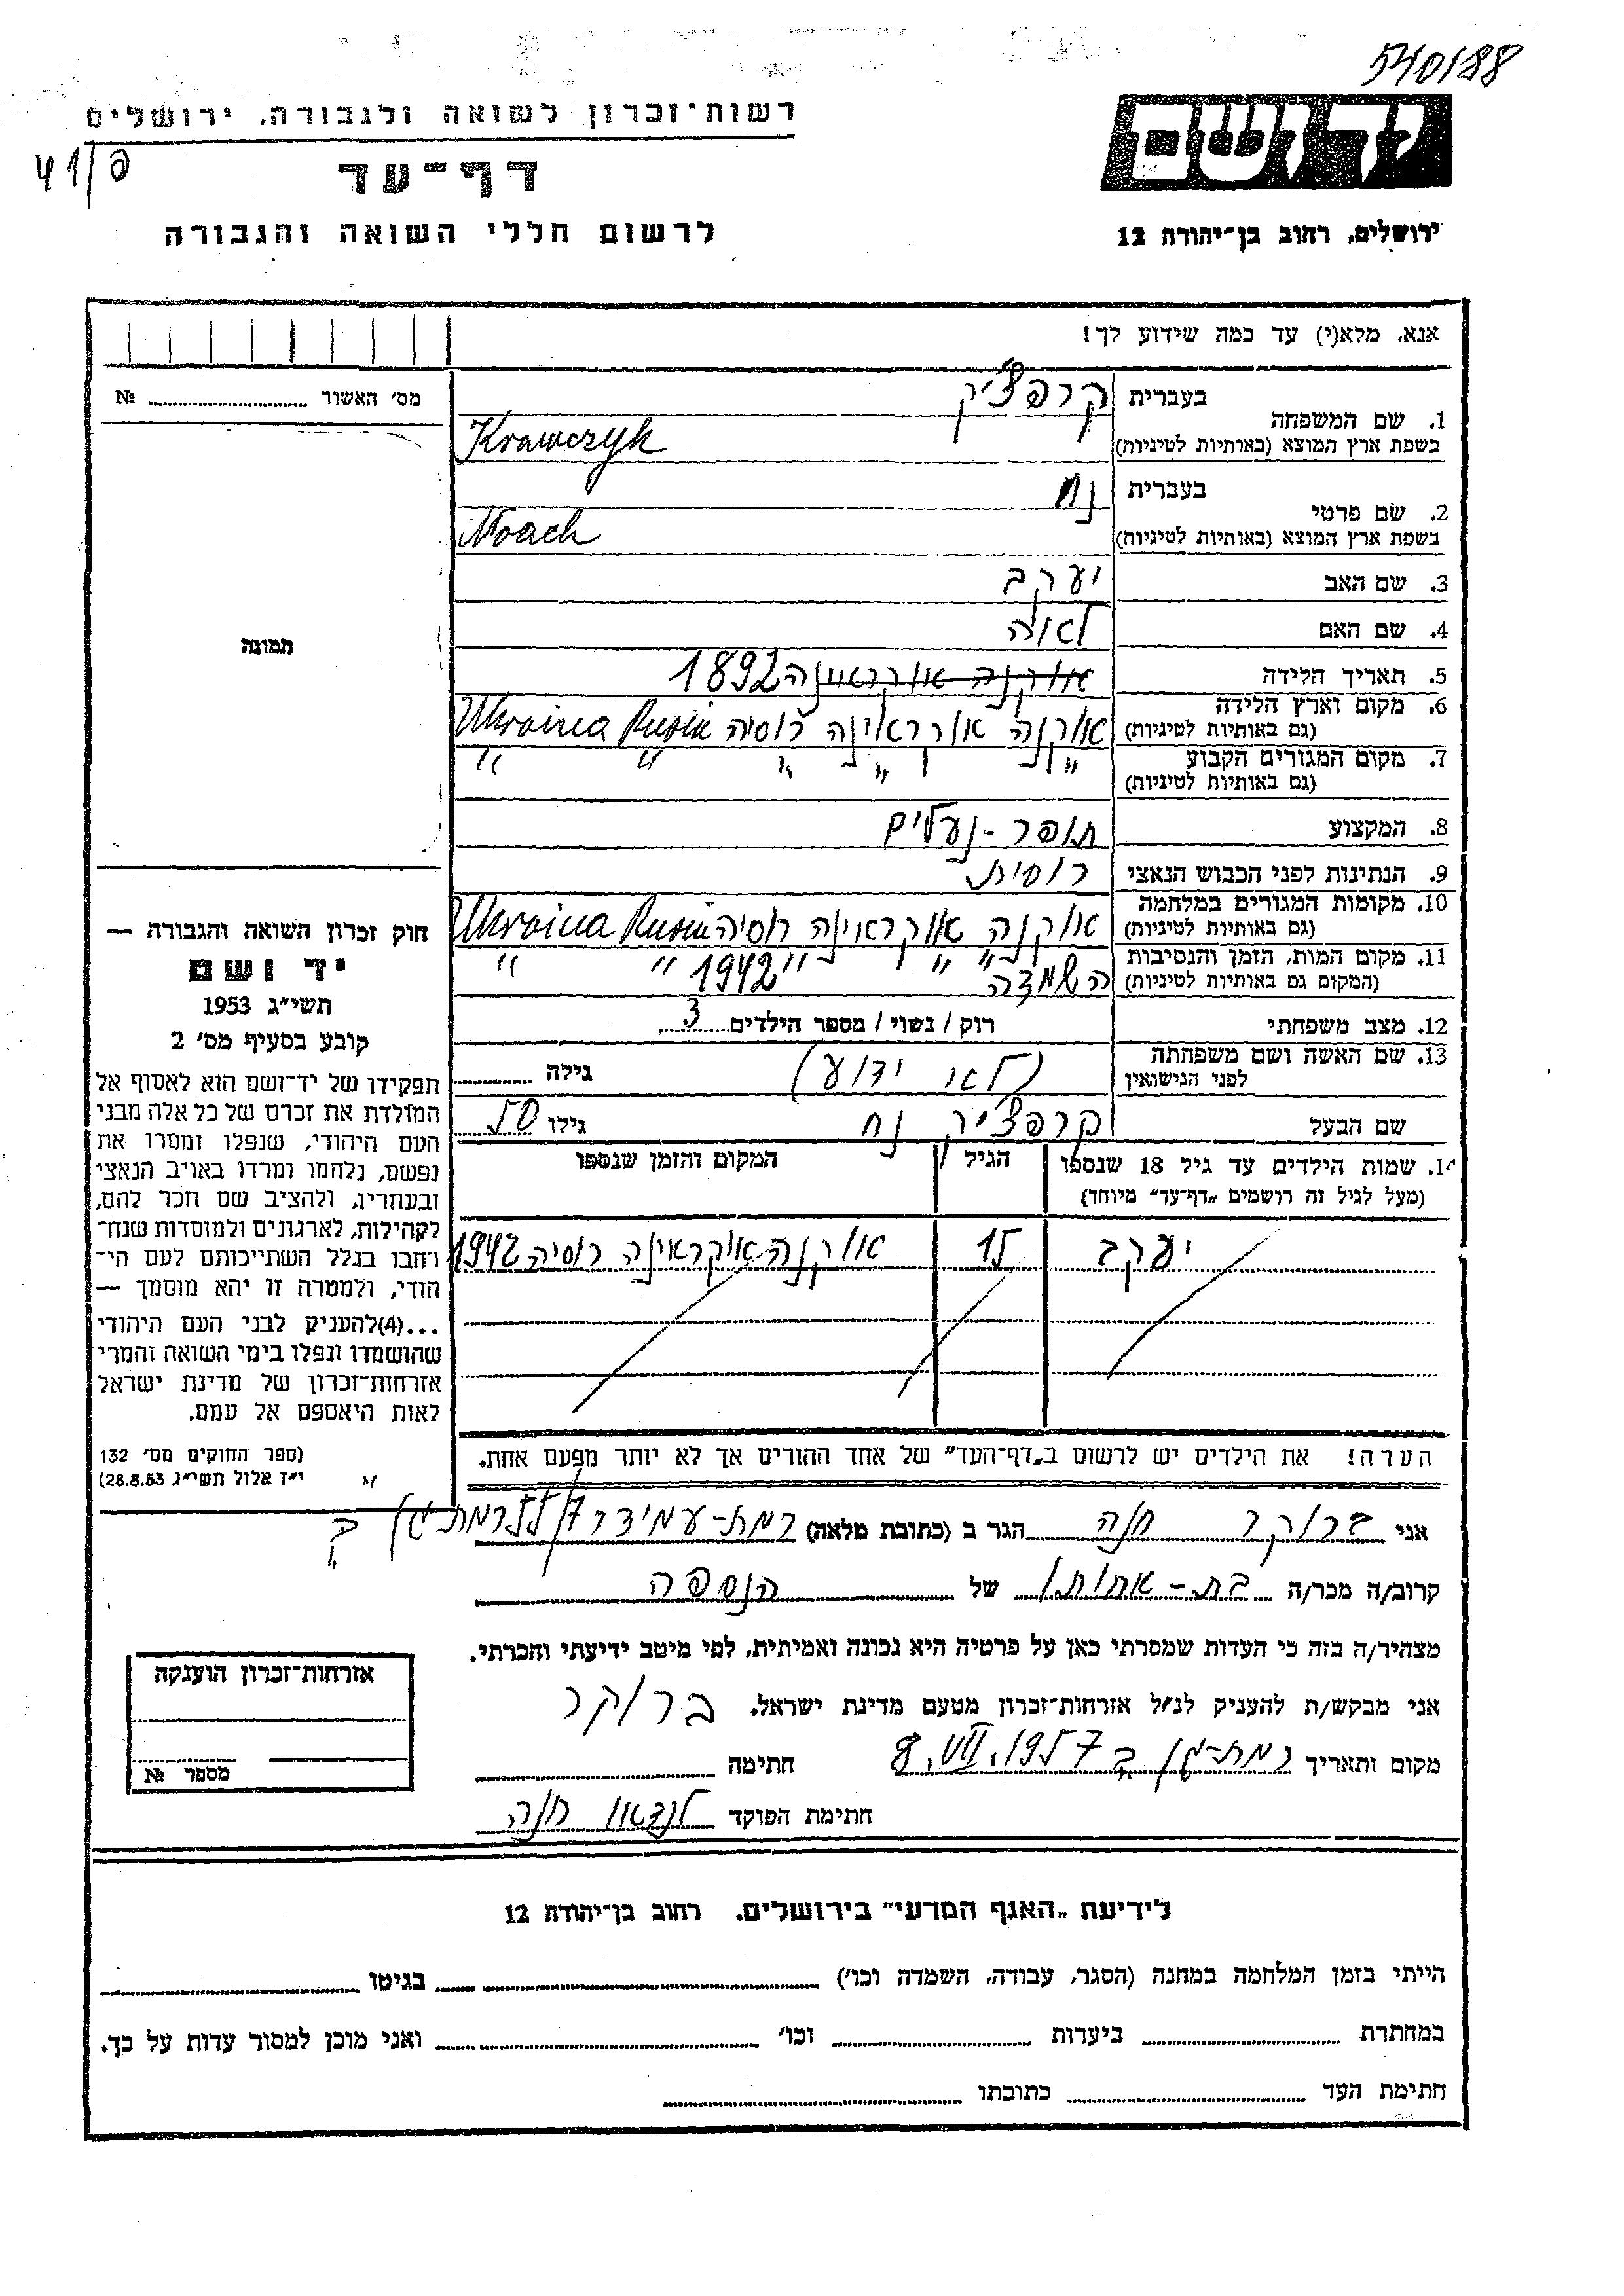 540188
יד ושם
רשות־זכרון לשואה ולגבורה, ירושלים
41/פ
דף־עד
ירושלים, רחוב בן־יהודה 12
לרשום חללי השואה והגבורה
אנא, מלא(י) עד כמה שידוע לך!
מס׳ האשור № 
1. שם המשפחה
בעברית קרפצ׳יק
בשפת ארץ המוצא (באותיות לטיניות) Krawczyk
2. שם פרטי
בעברית נח
בשפת ארץ המוצא (באותיות לטיניות) Noach
3. שם האב יעקב
4. שם האם לאה
5. תאריך הלידה 1892
6. מקום וארץ הלידה
(גם באותיות לטיניות) רוסיה Ukraina Rusia
7. מקום המגורים הקבוע " " " " "
(גם באותיות לטיניות)
8. המקצוע תופר - נעלים
9. הנתינות לפני הכבוש הנאצי רוסית
10. מקומות המגורים במלחמה
(גם באותיות לטיניות) אוקראינה רוסיה Ukraina Rusia
11. מקום המות, הזמן והנסיבות
(המקום גם באותיות לטיניות) השמדה " " 1942 " " "
12. מצב משפחתי רוק / נשוי / מספר הילדים 3
13. שם האשה ושם משפחתה
לפני הנישואין (לא ידוע) גילה
שם הבעל קרפצ׳יק נח גילו 50
14. שמות הילדים עד גיל 18 שנספו
(מעל לגיל זה רושמים „דף־עד” מיוחד)
הגיל
המקום והזמן שנספו
יעקב 15 אוקראינה רוסיה 1942
הערה! את הילדים יש לרשום ב„דף־העד” של אחד ההורים אך לא יותר מפעם אחת.
תמונה
חוק זכרון השואה והגבורה —
יד ושם
תשי״ג 1953
קובע בסעיף מס׳ 2
תפקידו של יד־ושם הוא לאסוף אל
המולדת את זכרם של כל אלה מבני
העם היהודי, שנפלו ומסרו את
נפשם, נלחמו ומרדו באויב הנאצי
ובעוזריו, ולהציב שם וזכר להם,
לקהילות, לארגונים ולמוסדות שנח־
רחבו בגלל השתייכותם לעם הי־
הודי, ולמטרה זו יהא מוסמך —
...(4) להעניק לבני העם היהודי
שהושמדו ונפלו בימי השואה והמרי
אזרחות־זכרון של מדינת ישראל
לאות היאספם אל עמם.
(ספר החוקים מס׳ 132
י״ז אלול תשי״ג 28.8.53)
אני ברוקר חנה הגר ב (כתובת מלאה) רמת-עמידר רמת-גן
קרוב/ה מכר/ה בת - אחותו של הנספה
מצהיר/ה בזה כי העדות שמסרתי כאן על פרטיה היא נכונה ואמיתית, לפי מיטב ידיעתי והכרתי.
אני מבקש/ת להעניק לנ״ל אזרחות־זכרון מטעם מדינת ישראל. ברוקר
מקום ותאריך רמת-גן ב 8.VII.1957 חתימה
חתימת הפוקד לנדאו חנה
אזרחות־זכרון הוענקה
מספר №
לידיעת „האגף המדעי” בירושלים, רחוב בן־יהודה 12
הייתי בזמן המלחמה במחנה (הסגר, עבודה, השמדה וכו׳) בגיטו
במחתרת ביערות וכו׳ ואני מוכן למסור עדות על כך.
חתימת העד כתובתו